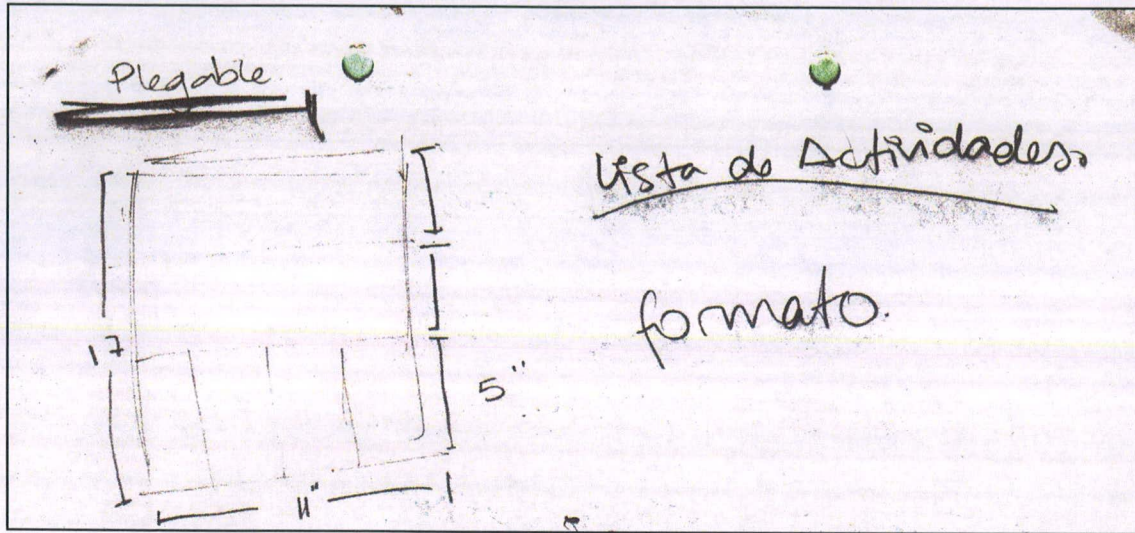 Plegable
Lista de Actividades.
formato.
17
5"
11"